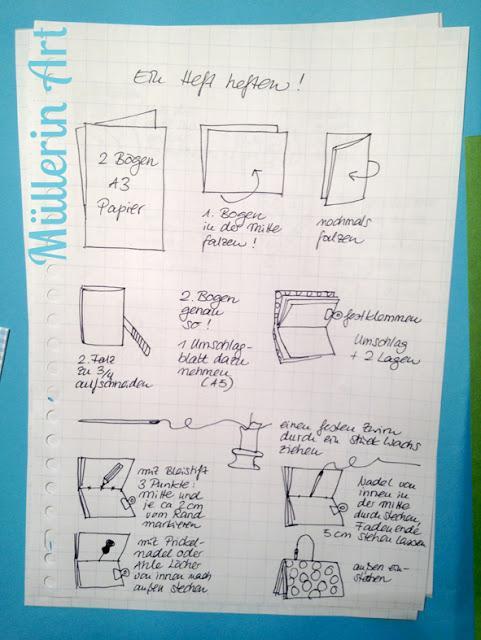 Müllerin Art
Ein Heft heften!
2 Bögen
A3
Papier
1. Bogen
in der Mitte
falzen!
nochmals
falzen
2. Falz
zu 3/4
aufschneiden
2. Bogen
genau
so!
1 Umschlag-
blatt dazu
nehmen
(A5)
festklemmen
Umschlag
+ 2 Lagen
einen festen Zwirn
durch ein Stück Wachs
ziehen
mit Bleistift
3 Punkte:
Mitte und
je ca 2cm
vom Rand
markieren
Nadel von
innen in
der Mitte
durchstechen,
Fadenende
5 cm stehen lassen
mit Prickel-
nadel oder
Ahle Löcher
von innen nach
außen stechen
außen ein-
stechen